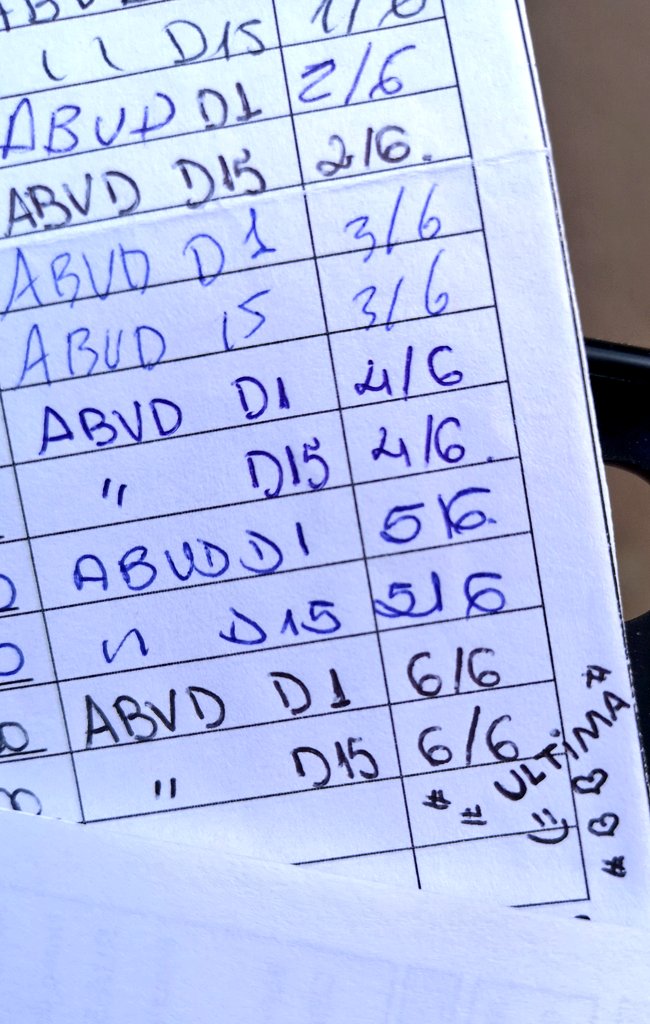 " D15 1/6
ABVD D1 2/6
ABVD D15 2/6.
ABVD D1 3/6
ABVD 15 3/6
ABVD D1 4/6
" D15 4/6.
ABVD D1 5/6.
" D15 5/6
ABVD D1 6/6
" D15 6/6
# # ULTiMA #
☺ ♡ ♡ #